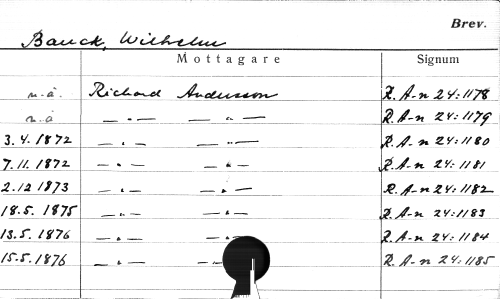 Brev.
Bauck, Wilhelm
Mottagare Signum
n.å. Richard Andersson R. A-n 24:1178
n.å —"— —"— R. A-n 24:1179
3.4.1872 —"— —"— R. A-n 24:1180
7.11.1872 —"— —"— R. A-n 24:1181
2.12 1873 —"— —"— R. A-n 24:1182
18.5. 1875 —"— —"— R. A-n 24:1183
13.5. 1876 —"— —"— R. A-n 24:1184
15.5. 1876 —"— —"— R. A-n 24:1185